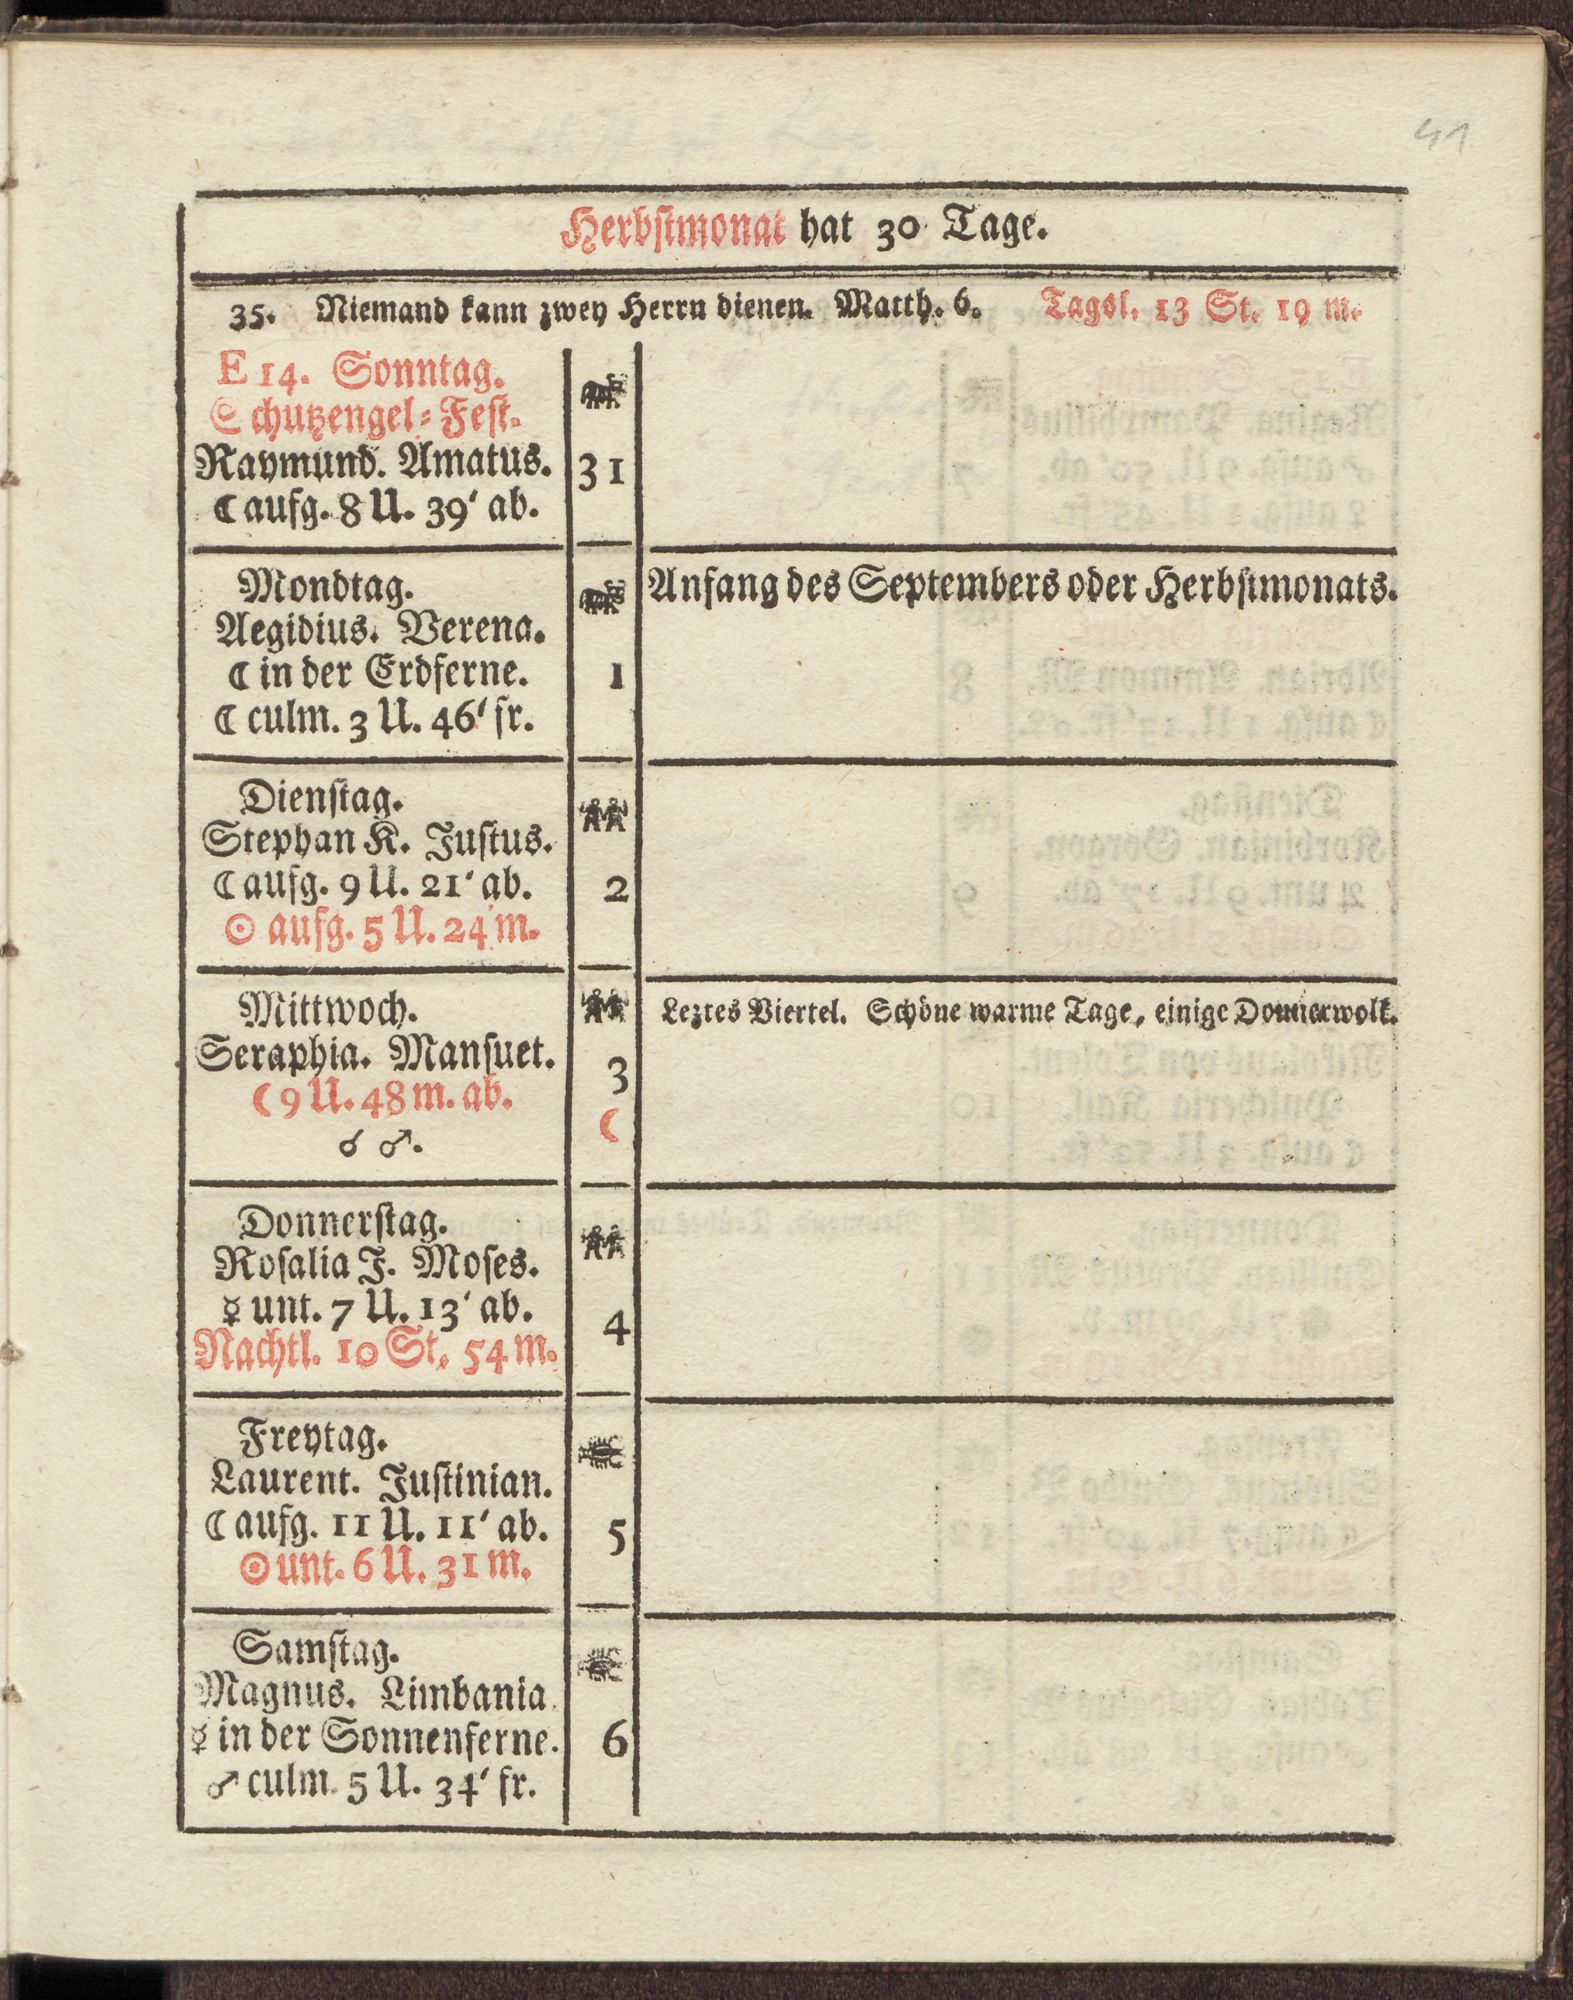 41
Herbstmonat hat 30 Tage.
35. Niemand kann zwey Herrn dienen. Matth. 6. Tagsl. 13 St. 19 m.
E 14. Sonntag.
Schutzengel=Fest.
Raymund. Amatus. 31
☾ aufg. 8 U. 39' ab.
Mondtag. Anfang des Septembers oder Herbstmonats.
Aegidius. Verena.
☾ in der Erdferne. 1
☾ culm. 3 U. 46' fr.
Dienstag.
Stephan K. Justus.
☾ aufg. 9 U. 21' ab. 2
☉ aufg. 5 U. 24 m.
Mittwoch. Leztes Viertel. Schöne warme Tage, einige Donnerwolk.
Seraphia. Mansuet. 3
☾ 9 U. 48 m. ab. ☾
☌ ♂.
Donnerstag.
Rosalia J. Moses.
☿ unt. 7 U. 13' ab. 4
Nachtl. 10 St. 54 m.
Freytag.
Laurent. Justinian.
☾ aufg. 11 U. 11' ab. 5
☉ unt. 6 U. 31 m.
Samstag.
Magnus. Limbania.
☿ in der Sonnenferne. 6
♂ culm. 5 U. 34' fr.